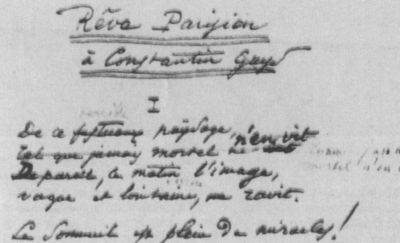 Rêve Parisien
à Constantin Guys
I
De ce fastueux paysage, n'en vit
Tel que jamais mortel ne
De pareil, ce matin l'image,
vague et lointaine, me ravit.
Le Sommeil est plein de miracles!